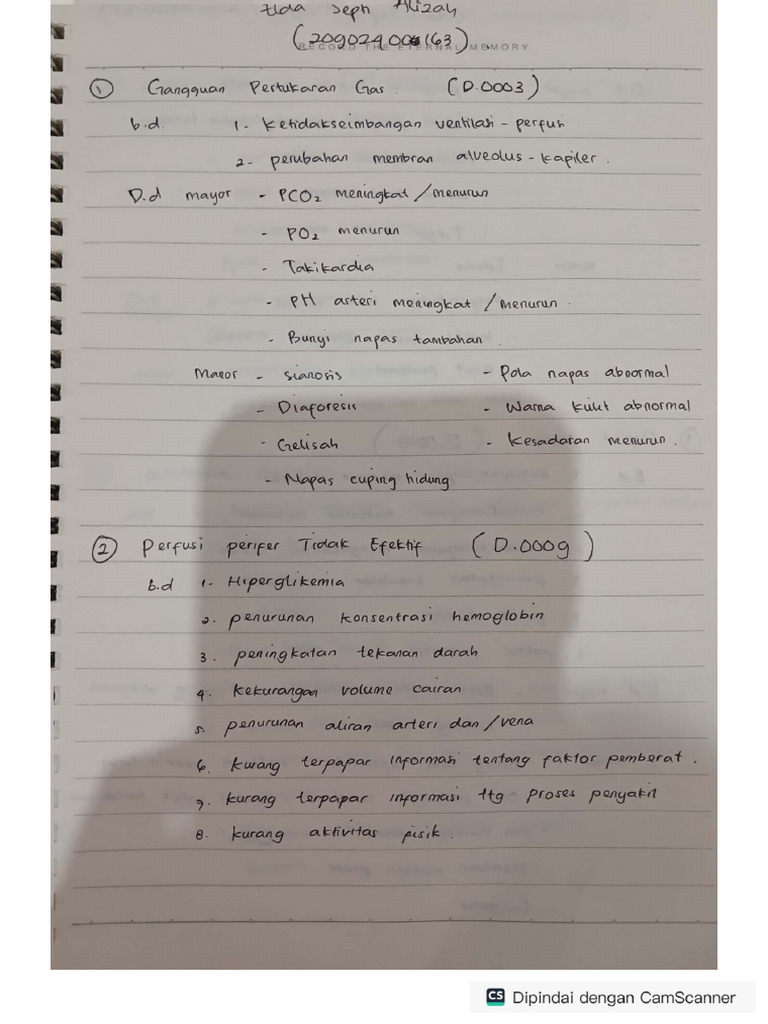 Seph Alizah
(20902400163)
RECORD THE ETERNAL MEMORY
① Gangguan Pertukaran Gas. (D.0003)
b.d. 1- Ketidakseimbangan ventilasi - perfusi
2- perubahan membran alveolus - kapiler.
D.d mayor - PCO2 meningkat/menurun
- PO2 menurun
- Takikardia
- PH arteri meningkat/menurun.
- Bunyi napas tambahan
- sianosis - Pola napas abnormal
- Diaforesis - Warna kulit abnormal
- Gelisah - Kesadaran menurun.
- Napas cuping hidung
② Perfusi perifer Tidak Efektif (D.0009)
b.d 1- Hiperglikemia
2. penurunan konsentrasi hemoglobin
3. peningkatan tekanan darah
4. kekurangan volume cairan
5. penurunan aliran arteri dan/vena
6. kurang terpapar informasi tentang faktor pemberat.
7. kurang terpapar informasi ttg proses penyakit
8. kurang aktivitas pisik.
CS Dipindai dengan CamScanner